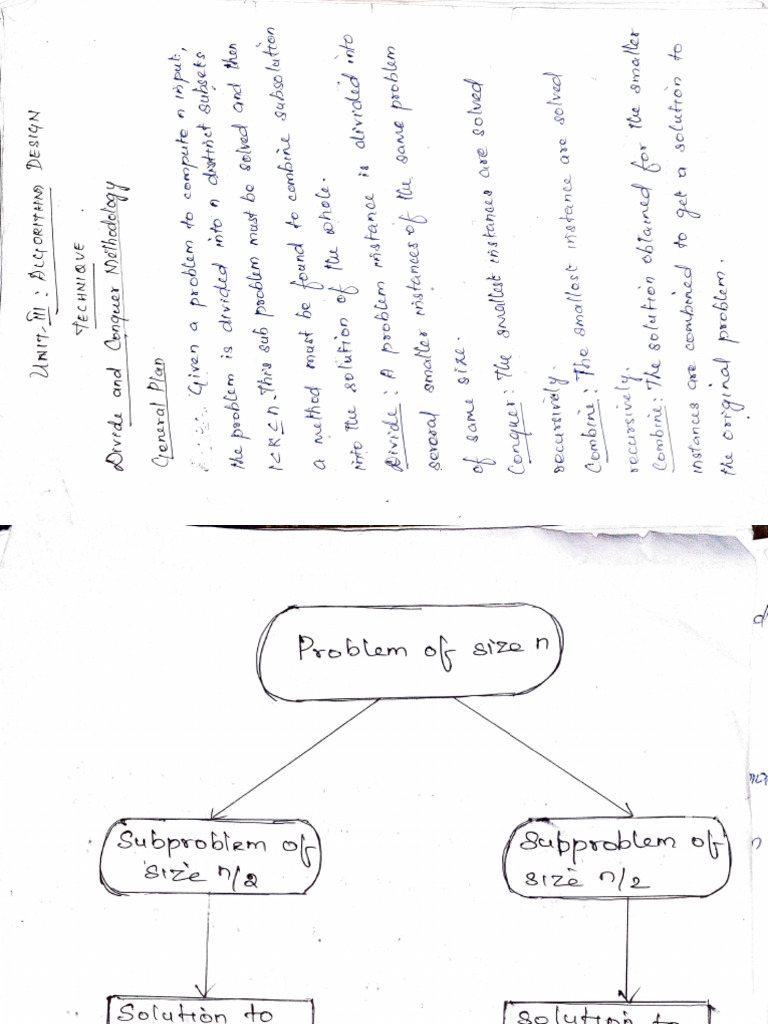 UNIT-III : ALGORITHMS DESIGN
TECHNIQUE.
Divide and Conquer Methodology
General Plan
Given a problem to compute n input,
the problem is divided into n distinct subsets
1<K≤n. This sub problem must be solved and then
a method must be found to combine subsolution
into the solution of the whole.
Divide : A problem instance is divided into
several smaller instances of the same problem
of same size.
Conquer : The smallest instances are solved
recursively.
Combine : The smallest instance are solved
recursively.
Combine : The solution obtained for the smaller
instances are combined to get a solution to
the original problem.
Problem of size n
Subproblem of
size n/2
Supproblem of
size n/2
Solution to
Solution to